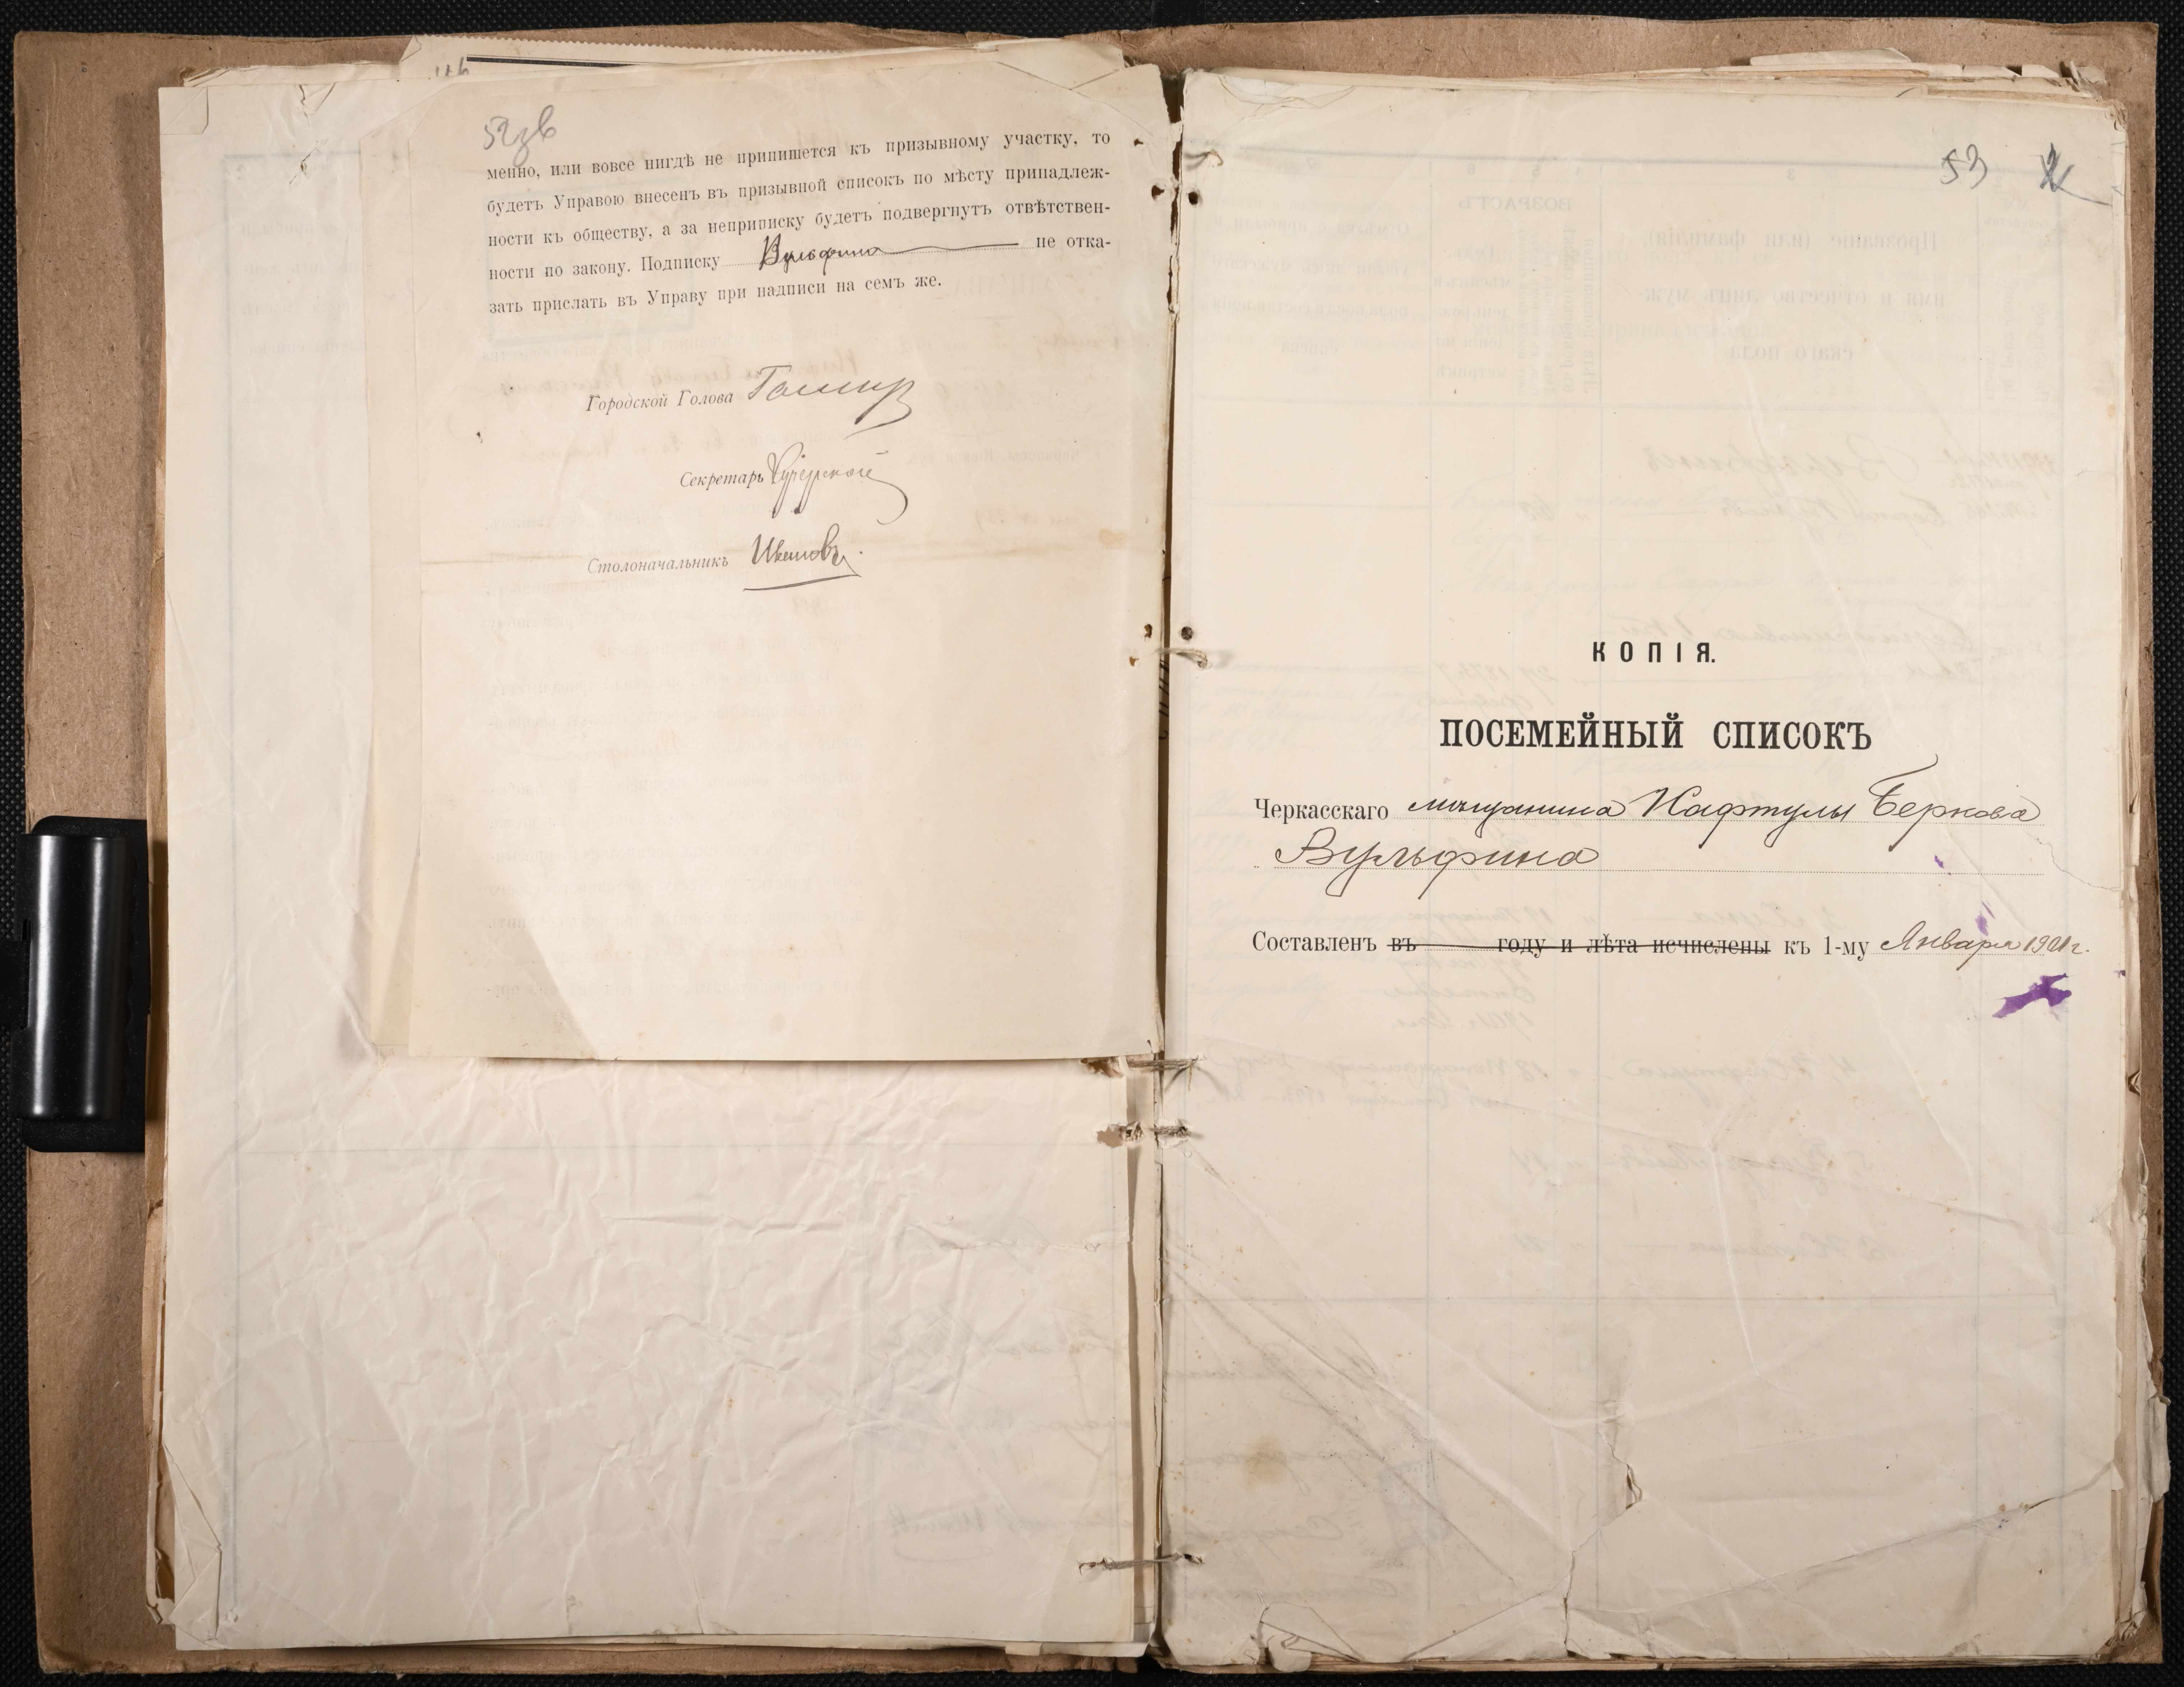 52 зв
менно, или вовсе нигдѣ не припишется къ призывному участку, то
будетъ Управою внесенъ въ призывной списокъ по мѣсту принадлеж-
ности къ обществу, а за неприписку будетъ подвергнутъ отвѣтствен-
ности по закону. Подписку Вульфина не отка-
зать прислать въ Управу при надписи на семъ же.
Городской Голова
Секретарь
Столоначальникъ
53
КОПІЯ.
ПОСЕМЕЙНЫЙ СПИСОКЪ
Черкасскаго мѣщанина Нафтулы Беркова
Вульфина
Составленъ въ году и лѣта исчислены къ 1-му Января 1901 г.